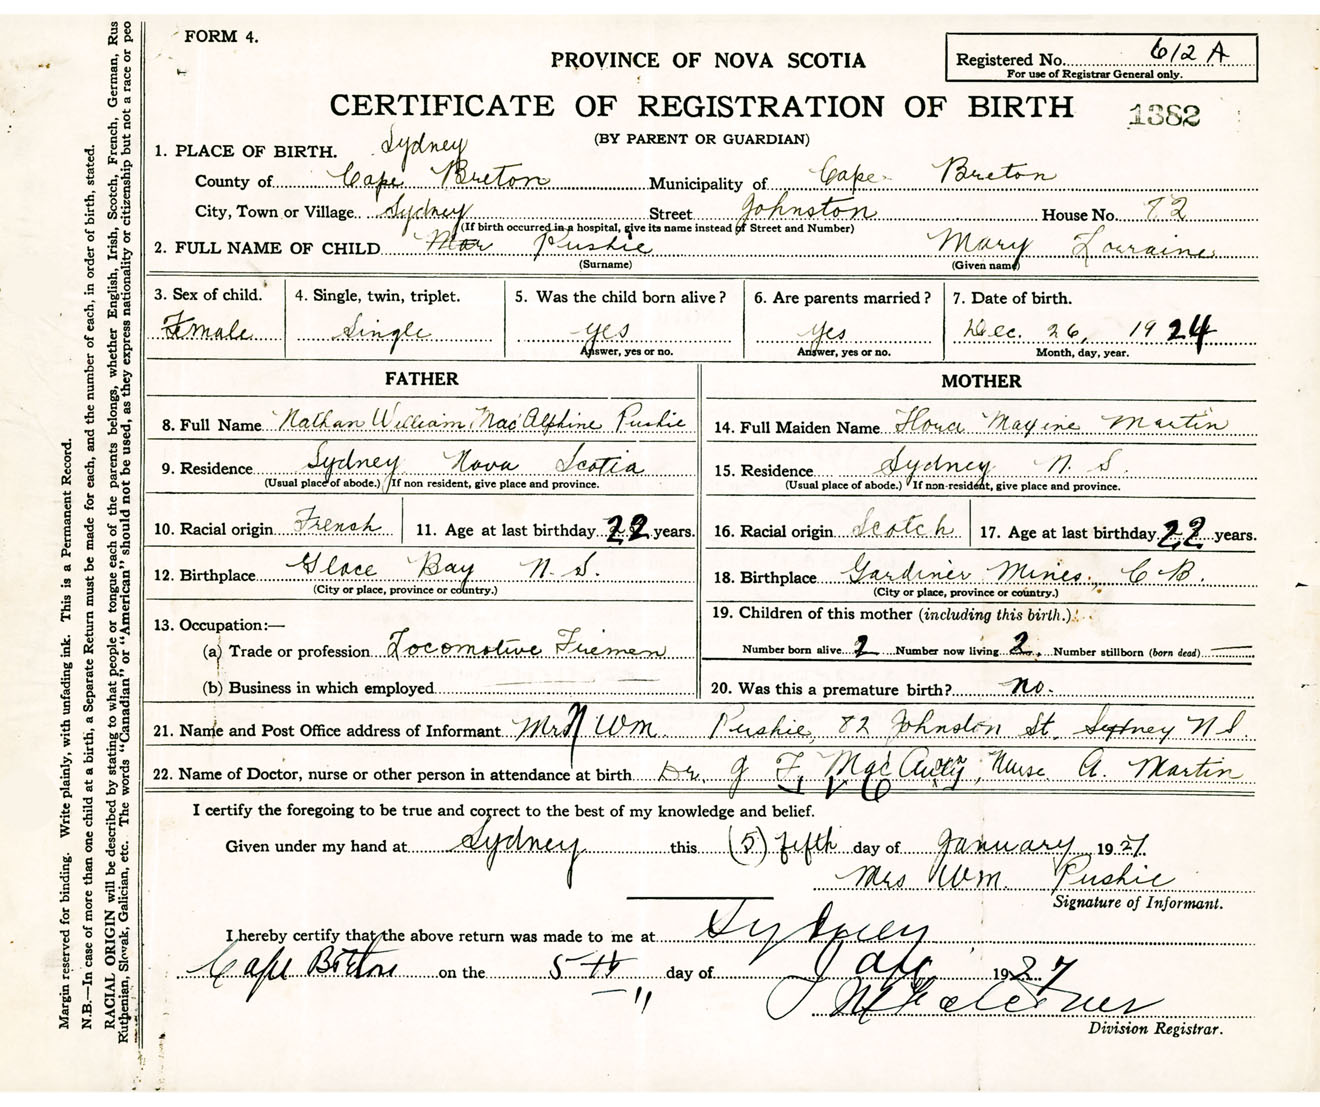 FORM 4.
PROVINCE OF NOVA SCOTIA
Registered No. 612 A
For use of Registrar General only.
CERTIFICATE OF REGISTRATION OF BIRTH
1382
(BY PARENT OR GUARDIAN)
1. PLACE OF BIRTH. Sydney
County of Cape Breton Municipality of Cape Breton
City, Town or Village Sydney Street Johnston House No. 82
(If birth occurred in a hospital, give its name instead of Street and Number)
2. FULL NAME OF CHILD Mar Pushie Mary Lorraine
(Surname) (Given name)
3. Sex of child. 4. Single, twin, triplet. 5. Was the child born alive? 6. Are parents married? 7. Date of birth.
Female Single yes yes Dec. 26, 1924
Answer, yes or no. Answer, yes or no. Month, day, year.
FATHER MOTHER
8. Full Name Nathan William MacAlphine Pushie 14. Full Maiden Name Flora Maxine Martin
9. Residence Sydney Nova Scotia 15. Residence Sydney N. S.
(Usual place of abode.) If non resident, give place and province. (Usual place of abode.) If non-resident, give place and province.
10. Racial origin French 11. Age at last birthday 22 years. 16. Racial origin Scotch 17. Age at last birthday 22 years.
12. Birthplace Glace Bay N. S. 18. Birthplace Gardiner Mines, C B.
(City or place, province or country.) (City or place, province or country.)
13. Occupation:— 19. Children of this mother (including this birth.)
(a) Trade or profession Locomotive Fireman Number born alive 2 Number now living 2 Number stillborn (born dead) —
(b) Business in which employed — 20. Was this a premature birth? no.
21. Name and Post Office address of Informant Mrs N Wm. Pushie, 82 Johnston St. Sydney N S.
22. Name of Doctor, nurse or other person in attendance at birth Dr. J F. Nurse A. Martin
I certify the foregoing to be true and correct to the best of my knowledge and belief.
Given under my hand at Sydney this (5) fifth day of January 1927.
Mrs Wm. Pushie
Signature of Informant.
I hereby certify that the above return was made to me at Sydney
Cape Breton on the 5th day of Jan 1927
Division Registrar.
Margin reserved for binding. Write plainly, with unfading ink. This is a Permanent Record.
N.B.—In case of more than one child at a birth, a Separate Return must be made for each, and the number of each, in order of birth, stated.
RACIAL ORIGIN will be described by stating to what people or tongue each of the parents belongs, whether English, Irish, Scotch, French, German, Rus
Ruthenian, Slovak, Galician, etc. The words "Canadian" or "American" should not be used, as they express nationality or citizenship but not a race or peo